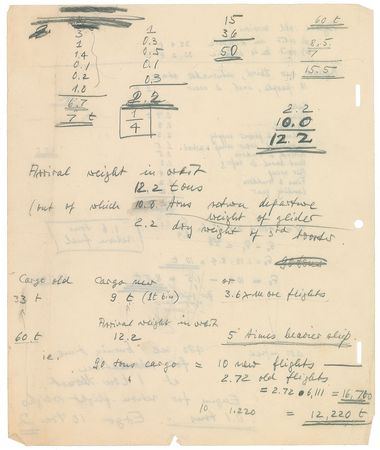 3 1 15 60 t
1 0.3 36 8.5
1.4 0.5 50 7
0.1 0.1 15.5
0.2 0.3
1.0 2.2
6.7 1 2.2
7 t 4 10.0
12.2
Arrival weight in orbit
12.2 tons
(out of which 10.0 tons return departure
weight of glider
2.2 dry weight of 3rd booster
Cargo old Cargo new or
33 t 9 t (1t bin) 3.6 x more flights
Arrival weight in orbit
60 t 12.2 5 times heavier ship.
i.e. 20 tons cargo = 10 new flights
2.72 old flights
= 2.72 • 6,111 = 16,700
10 1.220 = 12,220 t